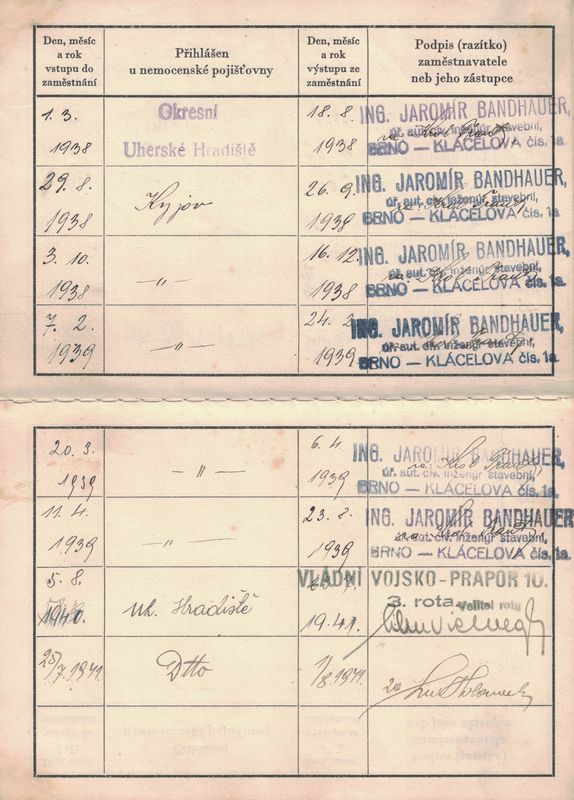 Den, měsíc
a rok
vstupu do
zaměstnání
Přihlášen
u nemocenské pojišťovny
Den, měsíc
a rok
výstupu ze
zaměstnání
Podpis (razítko)
zaměstnavatele
neb jeho zástupce
1. 3.
1938
Okresní
Uherské Hradiště
18. 8.
1938
ING. JAROMÍR BANDHAUER,
úř. aut. civ. inženýr stavební,
BRNO — KLÁCELOVA čís. 1a.
29. 8.
1938
Kyjov
26. 9.
1938
ING. JAROMÍR BANDHAUER,
úř. aut. civ. inženýr stavební,
BRNO — KLÁCELOVA čís. 1a.
3. 10.
1938
—〃—
16. 12.
1938
ING. JAROMÍR BANDHAUER,
úř. aut. civ. inženýr stavební,
BRNO — KLÁCELOVA čís. 1a.
7. 2.
1939
—〃—
24. 2.
1939
ING. JAROMÍR BANDHAUER,
úř. aut. civ. inženýr stavební,
BRNO — KLÁCELOVA čís. 1a.
20. 3.
1939
—〃—
6. 4.
1939
ING. JAROMÍR BANDHAUER,
úř. aut. civ. inženýr stavební,
BRNO — KLÁCELOVA čís. 1a.
11. 4.
1939
—〃—
23. 8.
1939
ING. JAROMÍR BANDHAUER
úř. aut. civ. inženýr stavební,
BRNO — KLÁCELOVA čís. 1a.
5. 8.
1940.
uh. Hradiště
19.41.
VLÁDNÍ VOJSKO-PRAPOR 10.
3. rota
Velitel roty
28/7.1941.
Dtto
1/8.1941.